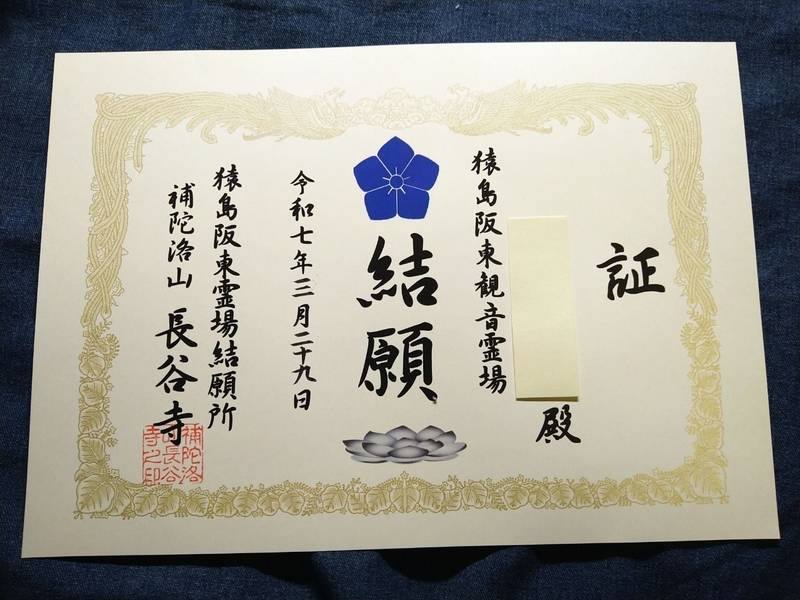 証
殿
猿島阪東観音霊場
結願
令和七年三月二十九日
猿島阪東霊場結願所
補陀洛山 長谷寺
補陀洛
山長谷
寺之印